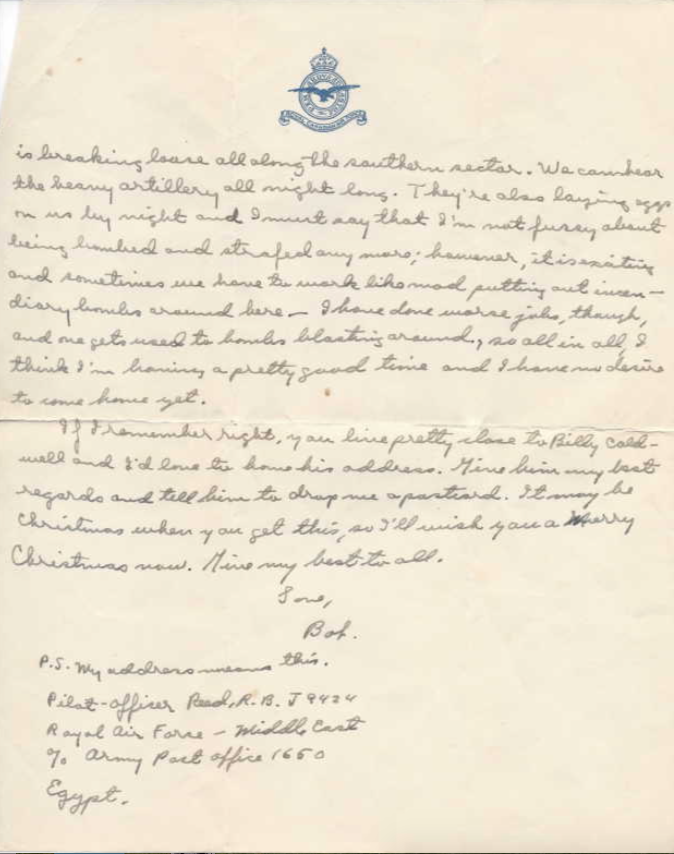 is breaking loose all along the southern sector. We can hear
the heavy artillery all night long. They're also laying eggs
on us by night and I must say that I'm not fussy about
being bombed and strafed any more; however, it is exciting
and sometimes we have to work like mad putting out incen-
diary bombs around here – I have done worse jobs, though,
and one gets used to bombs blasting around, so all in all, I
think I'm having a pretty good time and I have no desire
to come home yet.
If I remember right, you live pretty close to Billy Cald-
well and I'd love to have his address. Give him my best
regards and tell him to drop me a postcard. It may be
Christmas when you get this, so I'll wish you a Merry
Christmas now. Give my best to all.
Love,
Bob.
P.S. My address means this.
Pilot-Officer Reed, R.B. J9424
Royal Air Force – Middle East
c/o Army Post Office 1650
Egypt.